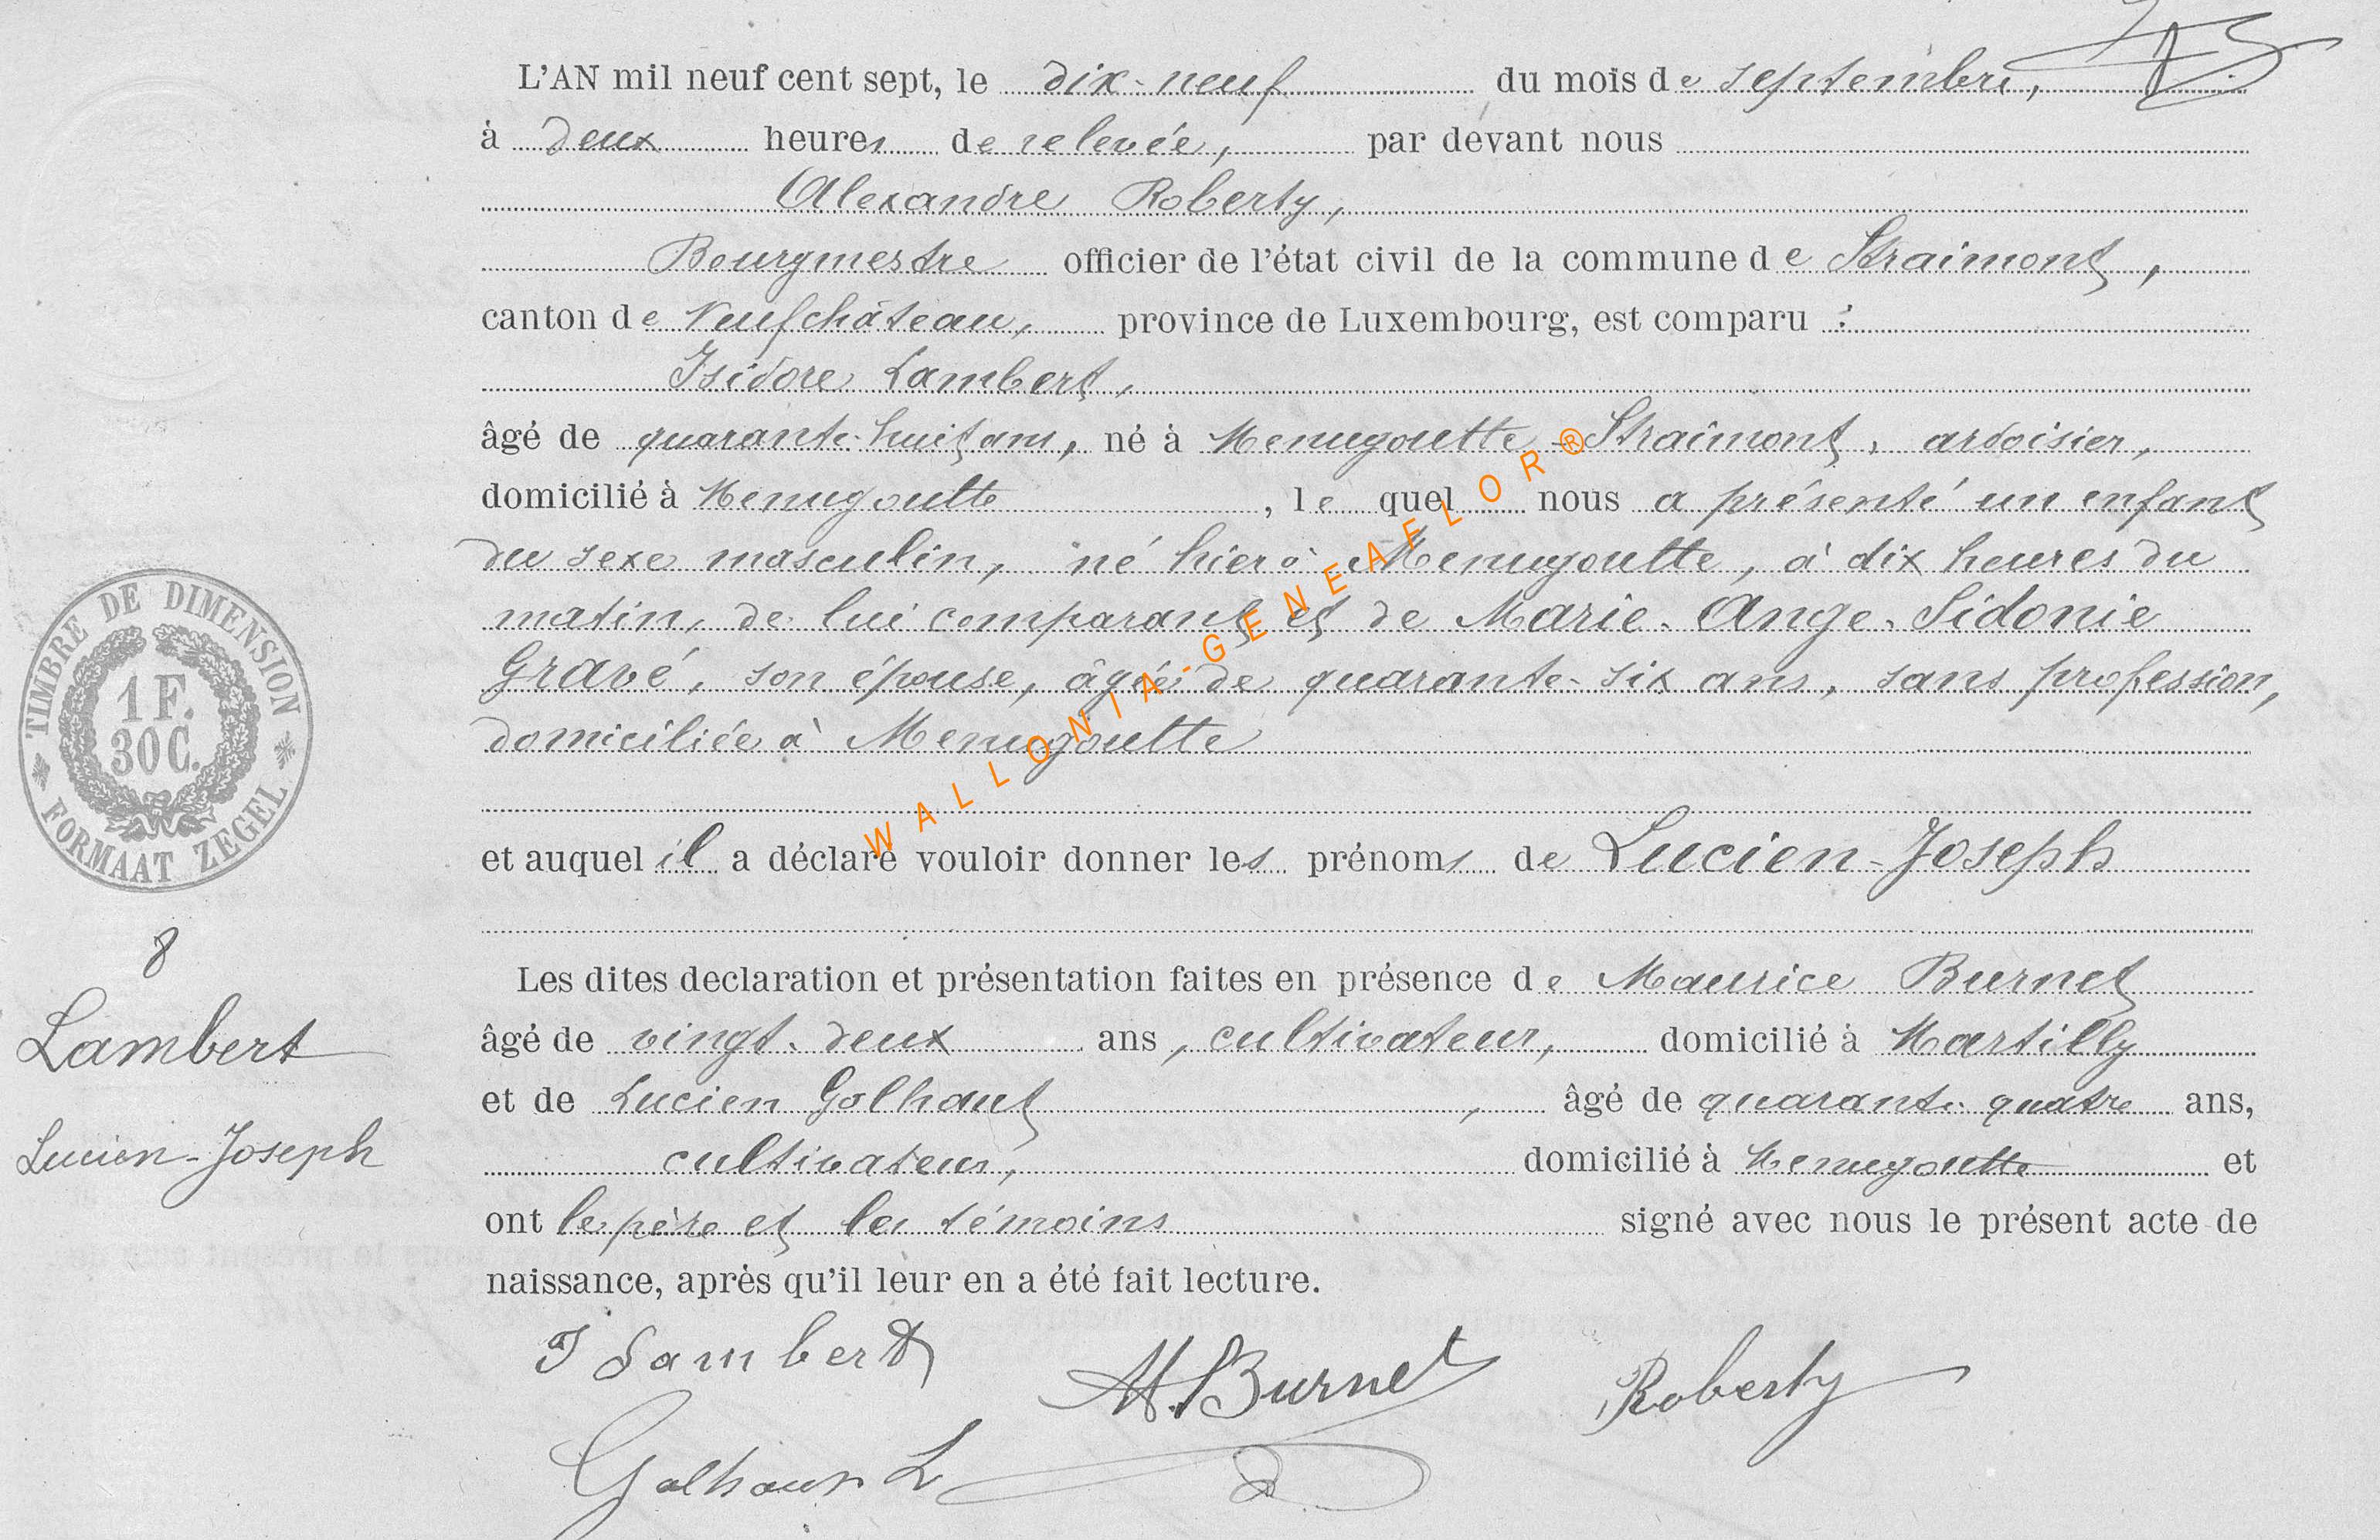 L'AN mil neuf cent sept, le dix-neuf du mois de septembre,
à deux heures de relevée, par devant nous
Alexandre Roberty,
Bourgmestre officier de l'état civil de la commune de Straimont,
canton de Neufchâteau, province de Luxembourg, est comparu :
Isidore Lambert,
âgé de quarante-huit ans, né à Menugoutte-Straimont, ardoisier,
domicilié à Menugoutte, le quel nous a présenté un enfant
du sexe masculin, né hier à Menugoutte, à dix heures du
matin, de lui comparant et de Marie-Ange-Sidonie
Gravé, son épouse, âgée de quarante-six ans, sans profession,
domiciliée à Menugoutte
et auquel il a déclaré vouloir donner les prénoms de Lucien-Joseph
Les dites declaration et présentation faites en présence de Maurice Burnet
âgé de vingt-deux ans, cultivateur, domicilié à Martilly
et de Lucien Golhaut, âgé de quarante-quatre ans,
cultivateur, domicilié à Menugoutte et
ont le père et les témoins signé avec nous le présent acte de
naissance, après qu'il leur en a été fait lecture.
I Lambert
M. Burnet
Roberty
Golhaut L
TIMBRE DE DIMENSION
1 F.
30 C.
FORMAAT ZEGEL
8
Lambert
Lucien-Joseph
WALLONIA-GENEAFLOR®